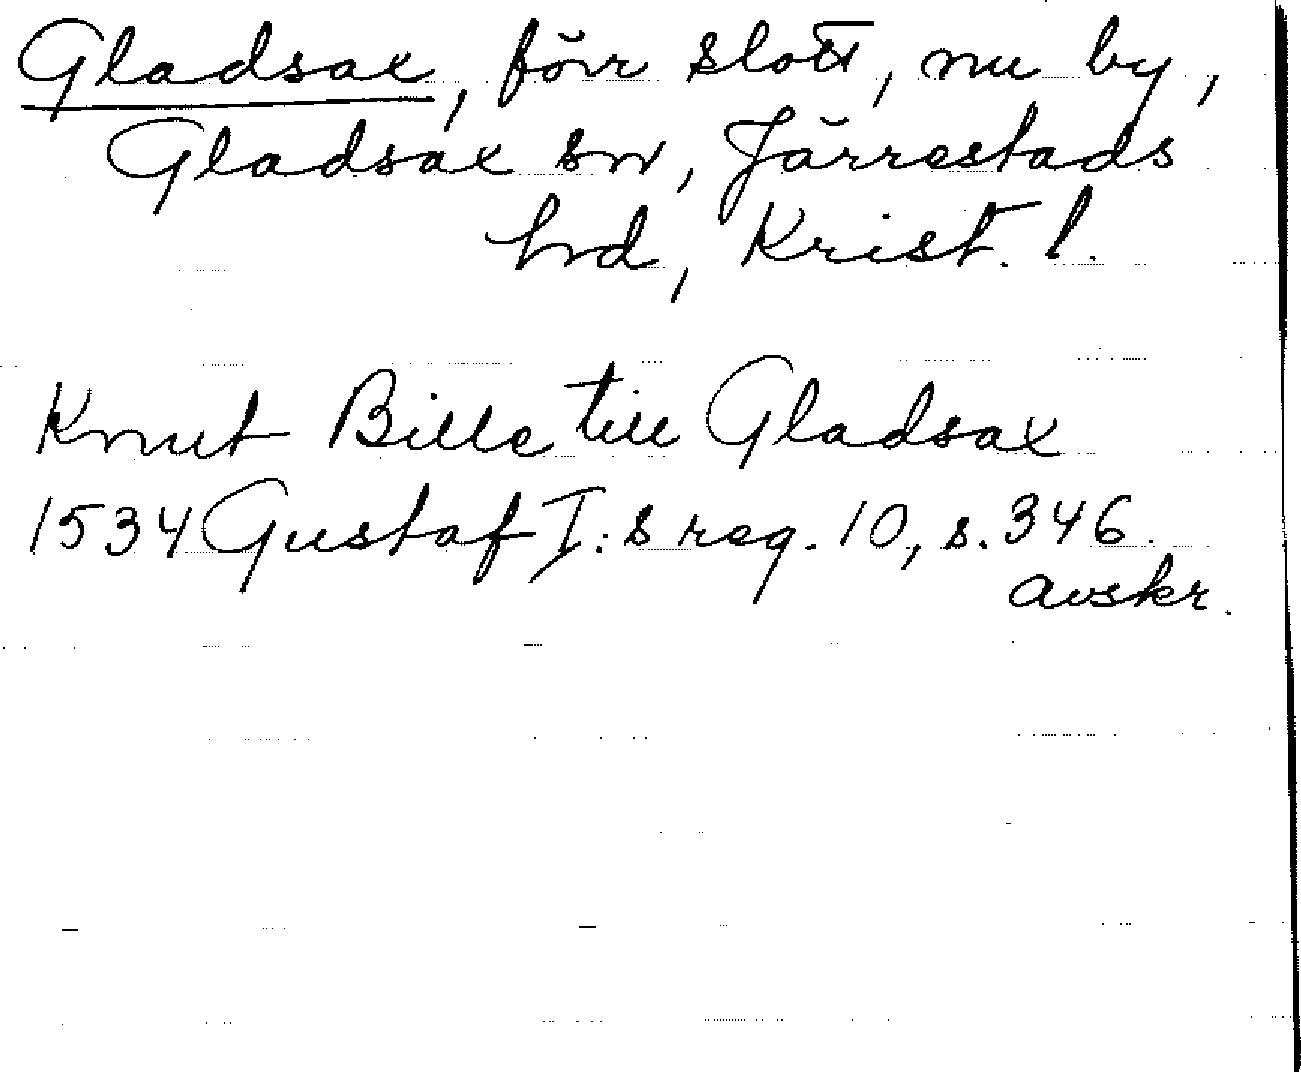 Gladsax, förr slott, nu by,
Gladsax sn, Järrestads
hd, Krist. l.
Knut Bille till Gladsax
1534 Gustaf I:s reg. 10, s. 346.
avskr.